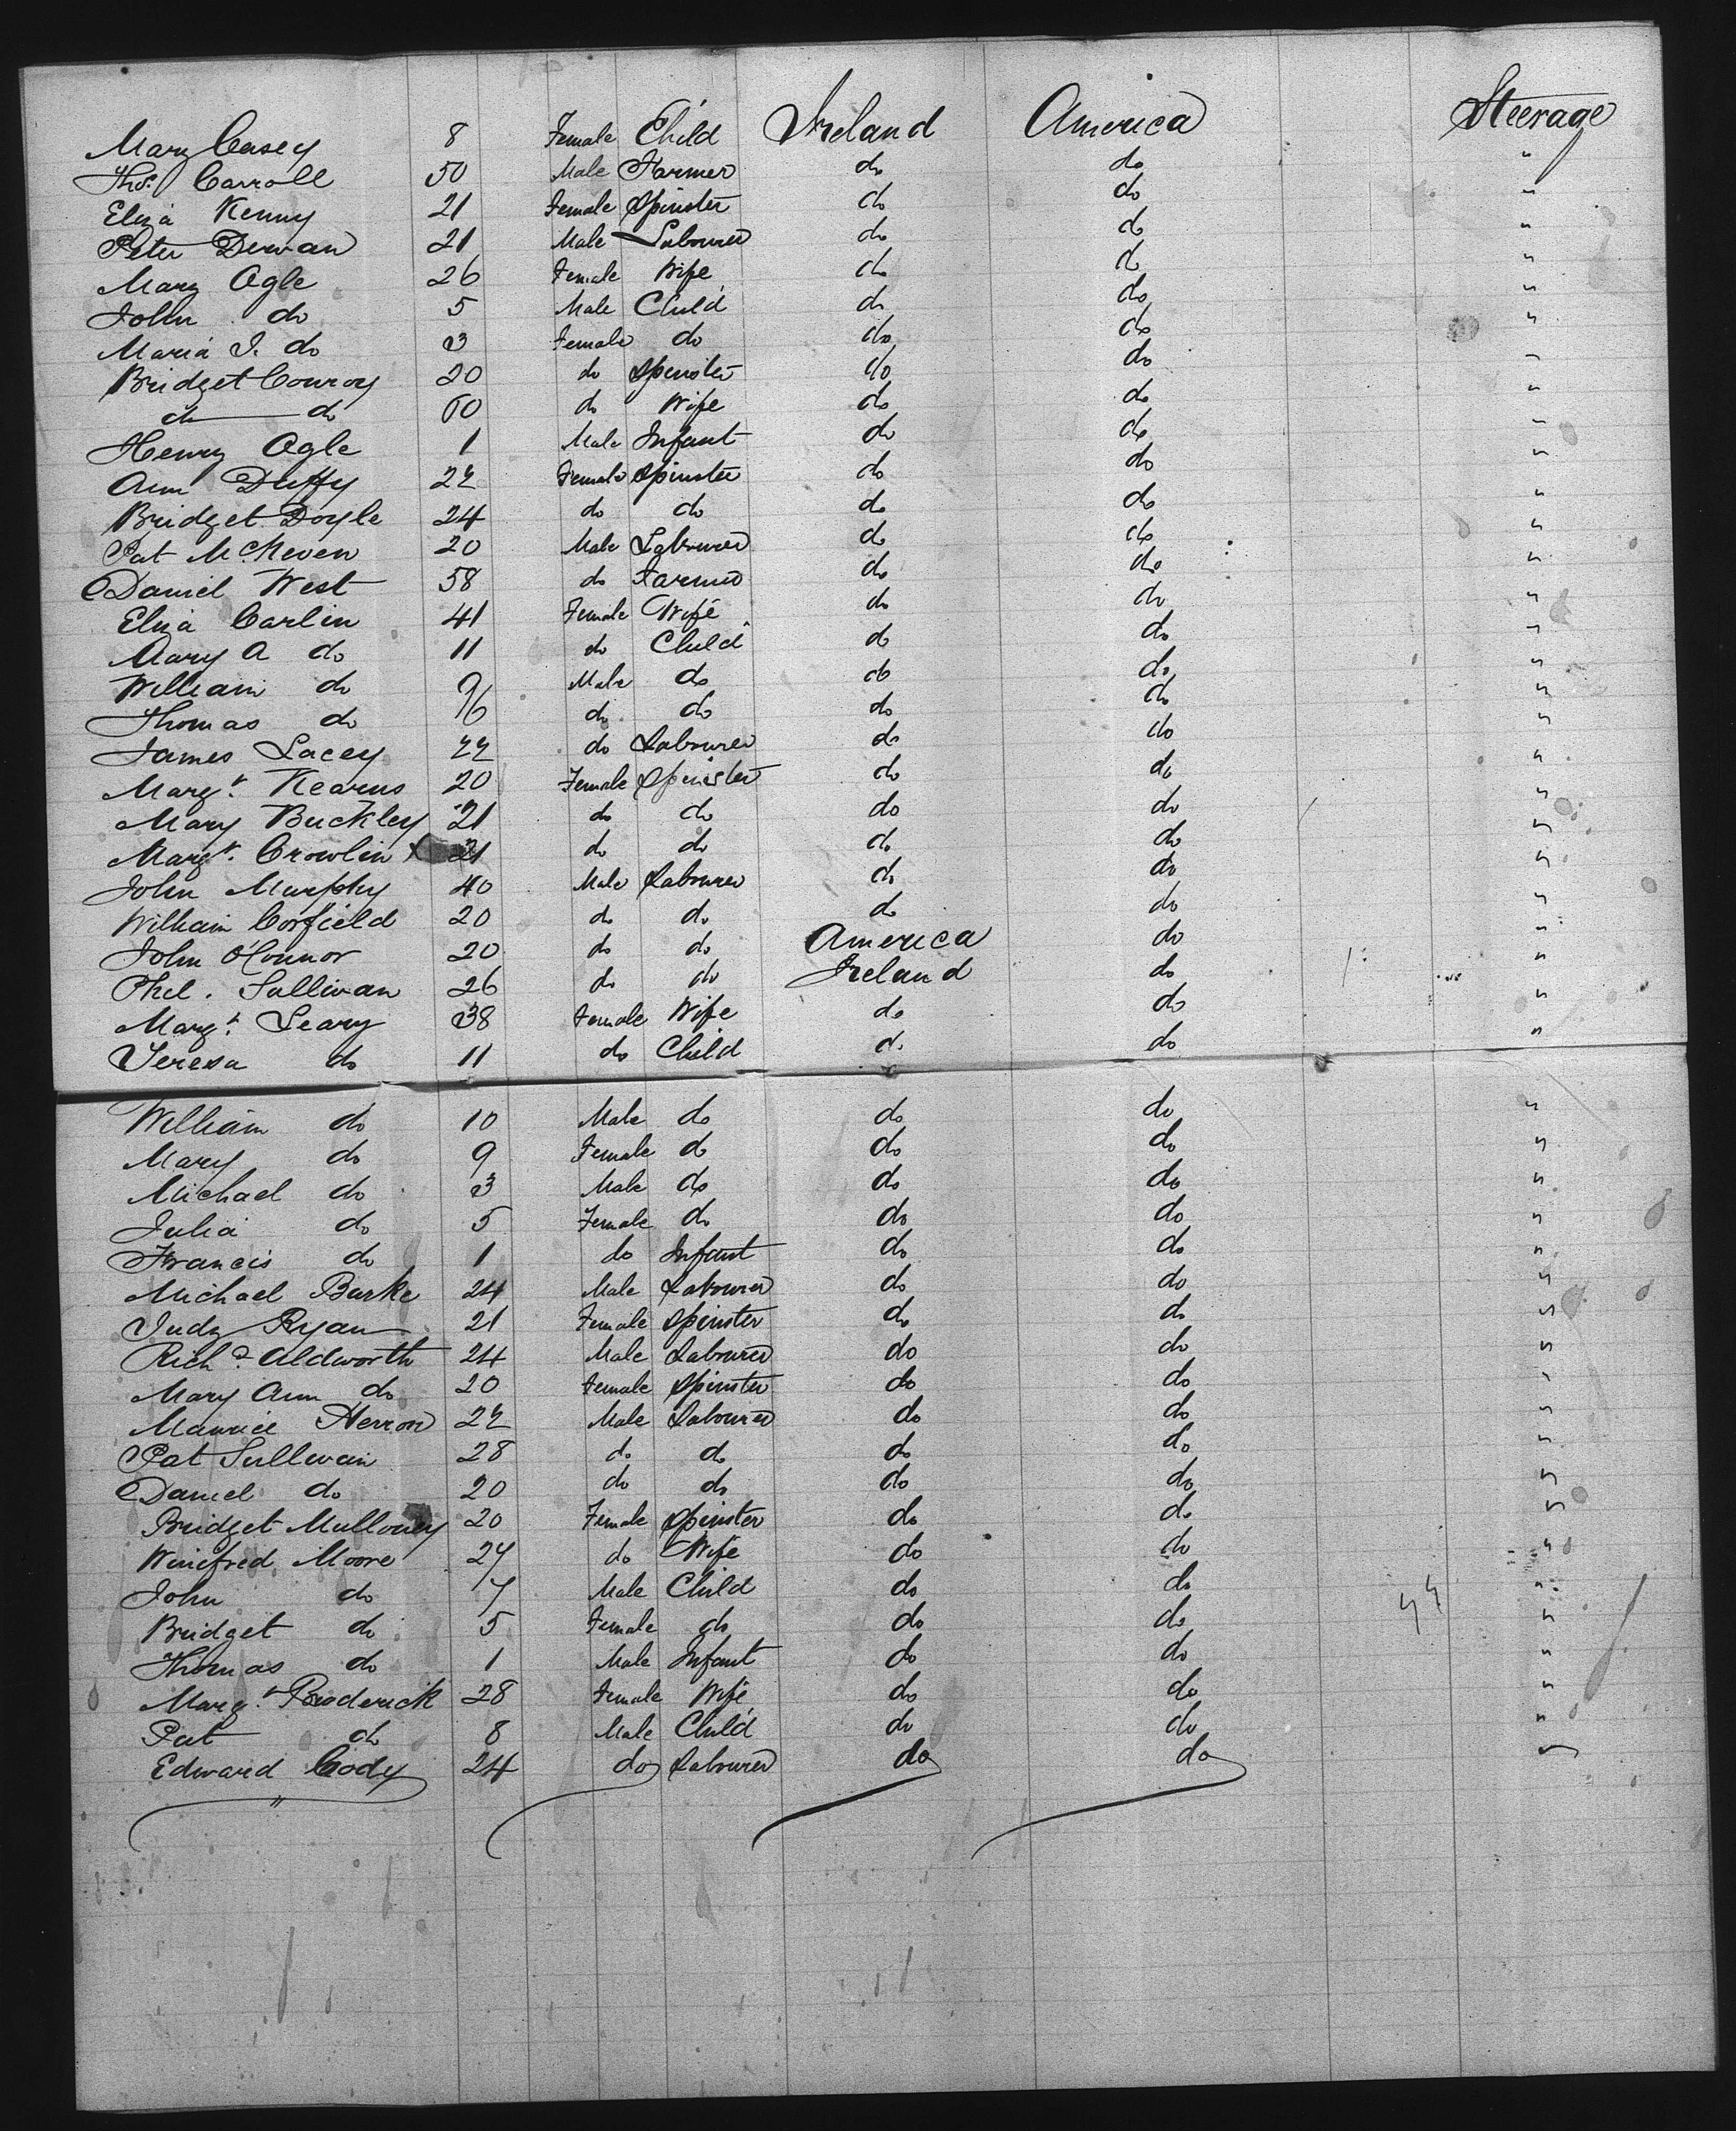 Mary Casey 8 Female Child Ireland America Steerage
Thos. Carroll 50 Male Farmer do do "
Eliza Kenny 21 Female Spinster do do "
Peter Derwan 21 Male Labourer do do "
Mary Ogle 26 Female Wife do do "
John do 5 Male Child do do "
Maria J. do 3 Female do do do "
Bridget Conroy 20 do Spinster do do "
do do 60 do Wife do do "
Henry Ogle 1 Male Infant do do "
Ann Duffy 22 Female Spinster do do "
Bridget Doyle 24 do do do do "
Pat 20 Male Labourer do do "
Daniel West 58 do Farmer do do "
Eliza Carlin 41 Female Wife do do "
Mary A do 11 do Child do do "
William do 9 Male do do do "
Thomas do 6 do do do do "
James Lacey 22 do Labourer do do "
Margt. Kearns 20 Female Spinster do do "
Mary Buckley 21 do do do do "
Margt. Crowlin X 21 do do do do "
John Murphy 40 Male Labourer do do "
William Corfield 20 do do do do "
John O'Connor 20 do do America do "
Phil. Sullivan 26 do do Ireland do "
Margt. Leary 38 Female Wife do do "
Teresa do 11 do Child do do "
William do 10 Male do do do "
Mary do 9 Female do do do "
Michael do 3 Male do do do "
Julia do 5 Female do do do "
Francis do 1 do Infant do do "
Michael Burke 24 Male Labourer do do "
Judy Ryan 21 Female Spinster do do "
Richd. Aldworth 24 Male Labourer do do "
Mary Ann do 20 Female Spinster do do "
Maurice Herron 22 Male Labourer do do "
Pat Sullivan 28 do do do do "
Daniel do 20 do do do do "
Bridget Mulloney 20 Female Spinster do do "
Winifred Moore 27 do Wife do do "
John do 7 Male Child do do "
Bridget do 5 Female do do do "
Thomas do 1 Male Infant do do "
Margt. Broderick 28 Female Wife do do "
Pat do 8 Male Child do do "
Edward Cody 24 do Labourer do do "